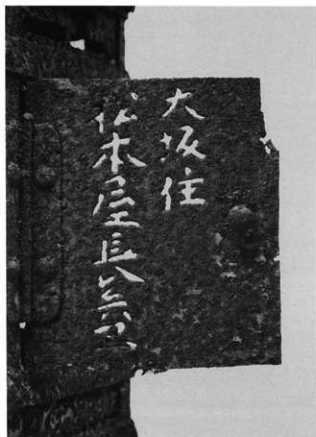 大坂住
松本屋長兵衛